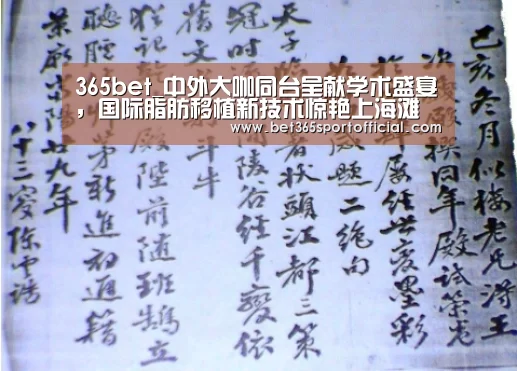 365bet_中外大咖同台呈献学术盛宴
，国际脂肪移植新技术惊艳上海滩
www.bet365sportofficial.com
己亥冬月似梅老兄得王
撰同年殿試策
屡经世变墨彩
題二絶句
天子者状頭江都三策
冠时陵谷经千變依
舊文斗牛
猶記殿陛前随班鵠立
聽臚茅新進初通籍
廿九年
八十三叟陳雲誥